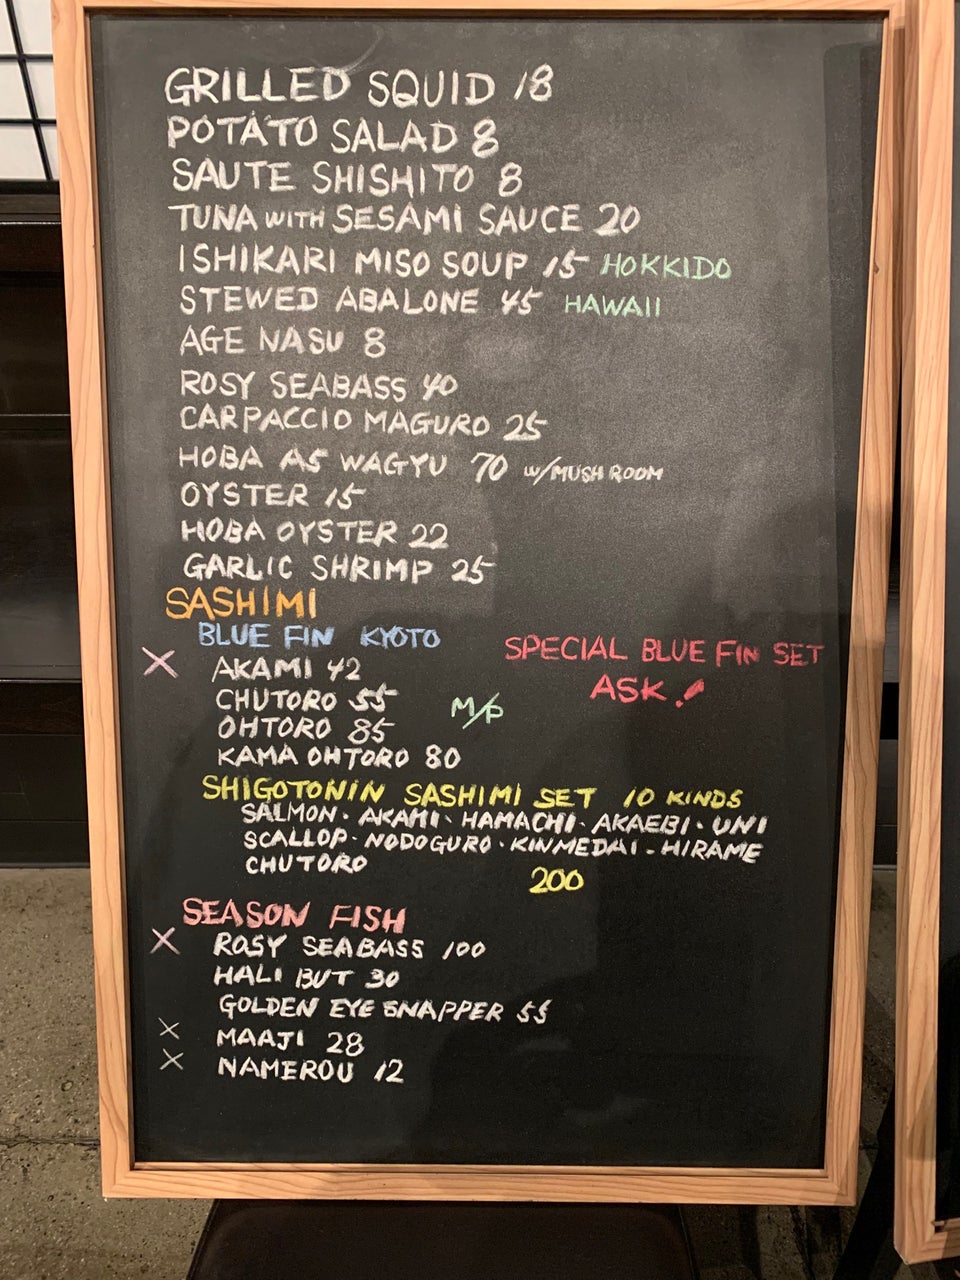 GRILLED SQUID 18
POTATO SALAD 8
SAUTE SHISHITO 8
TUNA WITH SESAMI SAUCE 20
ISHIKARI MISO SOUP 15 HOKKIDO
STEWED ABALONE 45 HAWAII
AGE NASU 8
ROSY SEABASS 40
CARPACCIO MAGURO 25
HOBA A5 WAGYU 70 W/MUSHROOM
OYSTER 15
HOBA OYSTER 22
GARLIC SHRIMP 25
SASHIMI
BLUE FIN KYOTO
X AKAMI 42
CHUTORO 55
OHTORO 85
KAMA OHTORO 80
M/P
SPECIAL BLUE FIN SET
ASK!
SHIGOTONIN SASHIMI SET 10 KINDS
SALMON · AKAMI · HAMACHI · AKAEBI · UNI
SCALLOP · NODOGURO · KINMEDAI - HIRAME
CHUTORO
200
SEASON FISH
X ROSY SEABASS 100
HALIBUT 30
GOLDEN EYE SNAPPER 55
X MAAJI 28
X NAMEROU 12